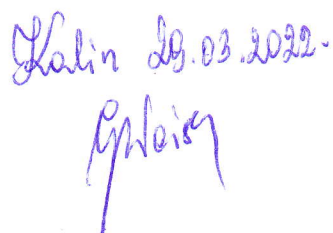 Kalin 29.03.2022.